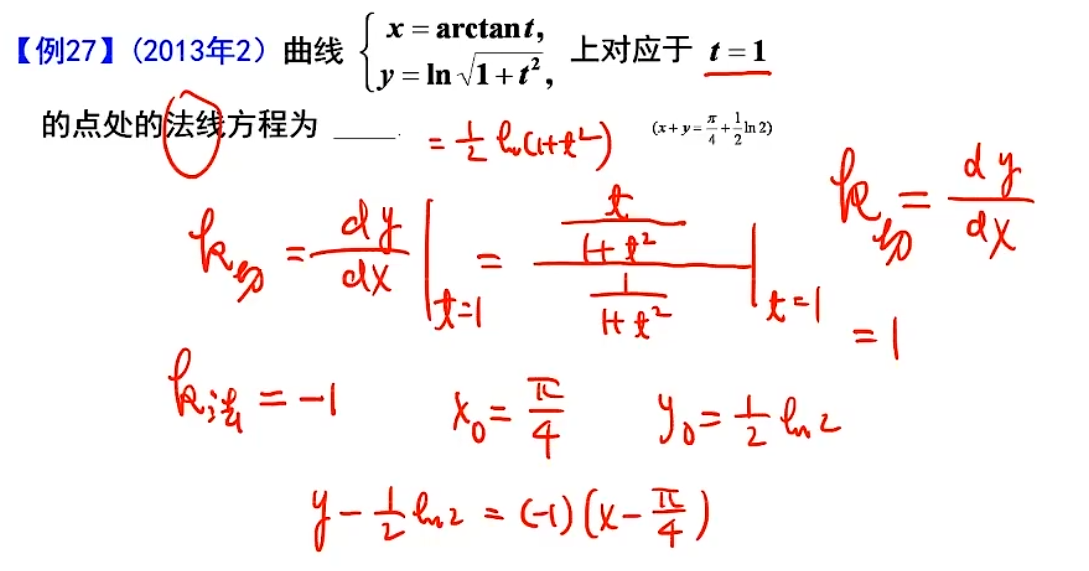 【例27】(2013年2) 曲线 { x = arctan t, y = ln √(1+t²), 上对应于 t = 1
的点处的法线方程为 ____.
(x + y = π/4 + 1/2 ln 2)
= 1/2 ln(1+t²)
k切 = dy/dx
k切 = dy/dx |t=1 = (t/(1+t²))/(1/(1+t²)) |t=1 = 1
k法 = -1 x₀ = π/4 y₀ = 1/2 ln 2
y - 1/2 ln 2 = (-1)(x - π/4)